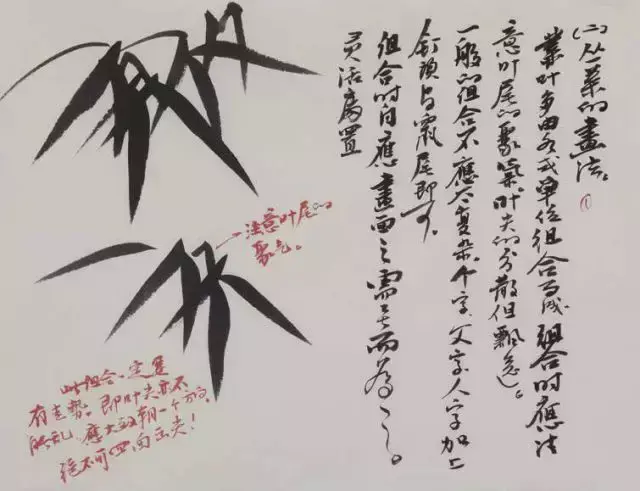 (二)丛叶的画法。
①
丛叶多由各式单位组合而成组合时应注
意叶尾的聚气叶尖的分散但飘忽。
一般的组合不应太复杂，个字父字人字加上
钉头与鼠尾即可。
组合时自应画面之需要而为之。
灵活处置
注意叶尾的
聚气。
此组合，定是
有走势。即叶尖亦不
能乱，应大致朝一个方向，
绝不可四面出尖！